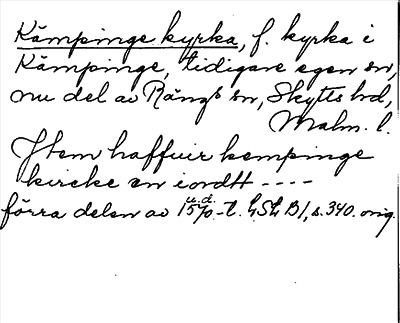 Kämpinge kyrka, f. kyrka i
Kämpinge, tidigare egen sn,
nu del av Rängs sn, Skytts hd,
Malm. l.
Item haffuir kempinge
kircke en iordtt ----
förra delen av 15/70-t. u.d. LSL B1, s. 340. orig.